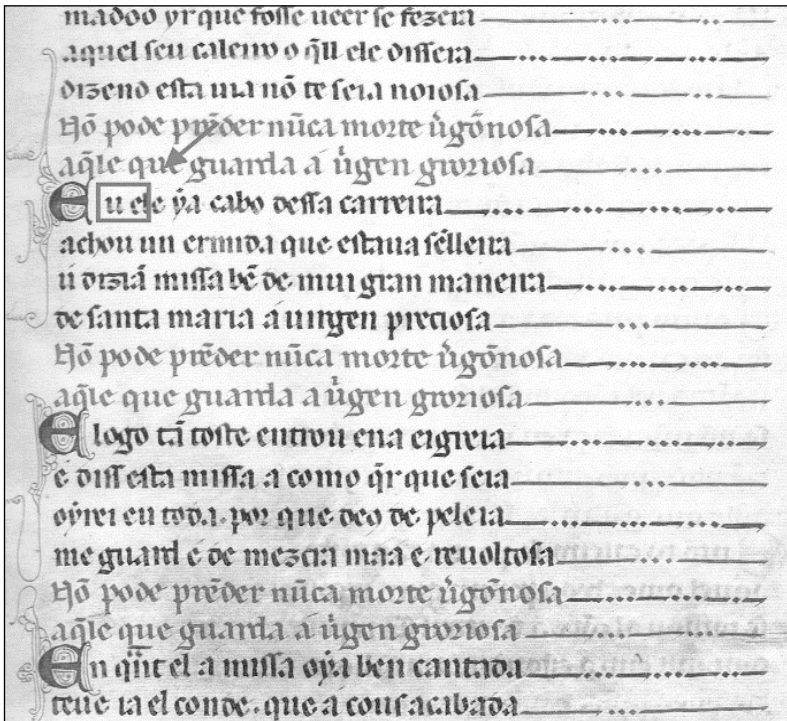 madoo yr que fosse ueer se fezera
aquel seu caleiro o q̃ll ele dissera
dizend esta uia nõ te seia noiosa
Nõ pode prẽder nũca morte ũgõnosa
aq̃le que guarda a ũgen groriosa
E u ele ýa cabo dessa carreira
achou un ermida que estaua sẽlleira
u diziã missa bẽ de mui gran maneira
de santa maria a uirgen preciosa
Nõ pode prẽder nũca morte ũgõnosa
aq̃le que guarda a ũgen groriosa
E logo tã toste entrou ena eigreia
e diss esta missa a como q̃r que seia
oýrei eu toda. por que deo de peleia
me guard e de mezcra maa e reuoltosa
Nõ pode prẽder nũca morte ũgõnosa
aq̃le que guarda a ũgen groriosa
En q̃nt el a missa oýa ben cantada
teue ia el conde. que a cous acabada